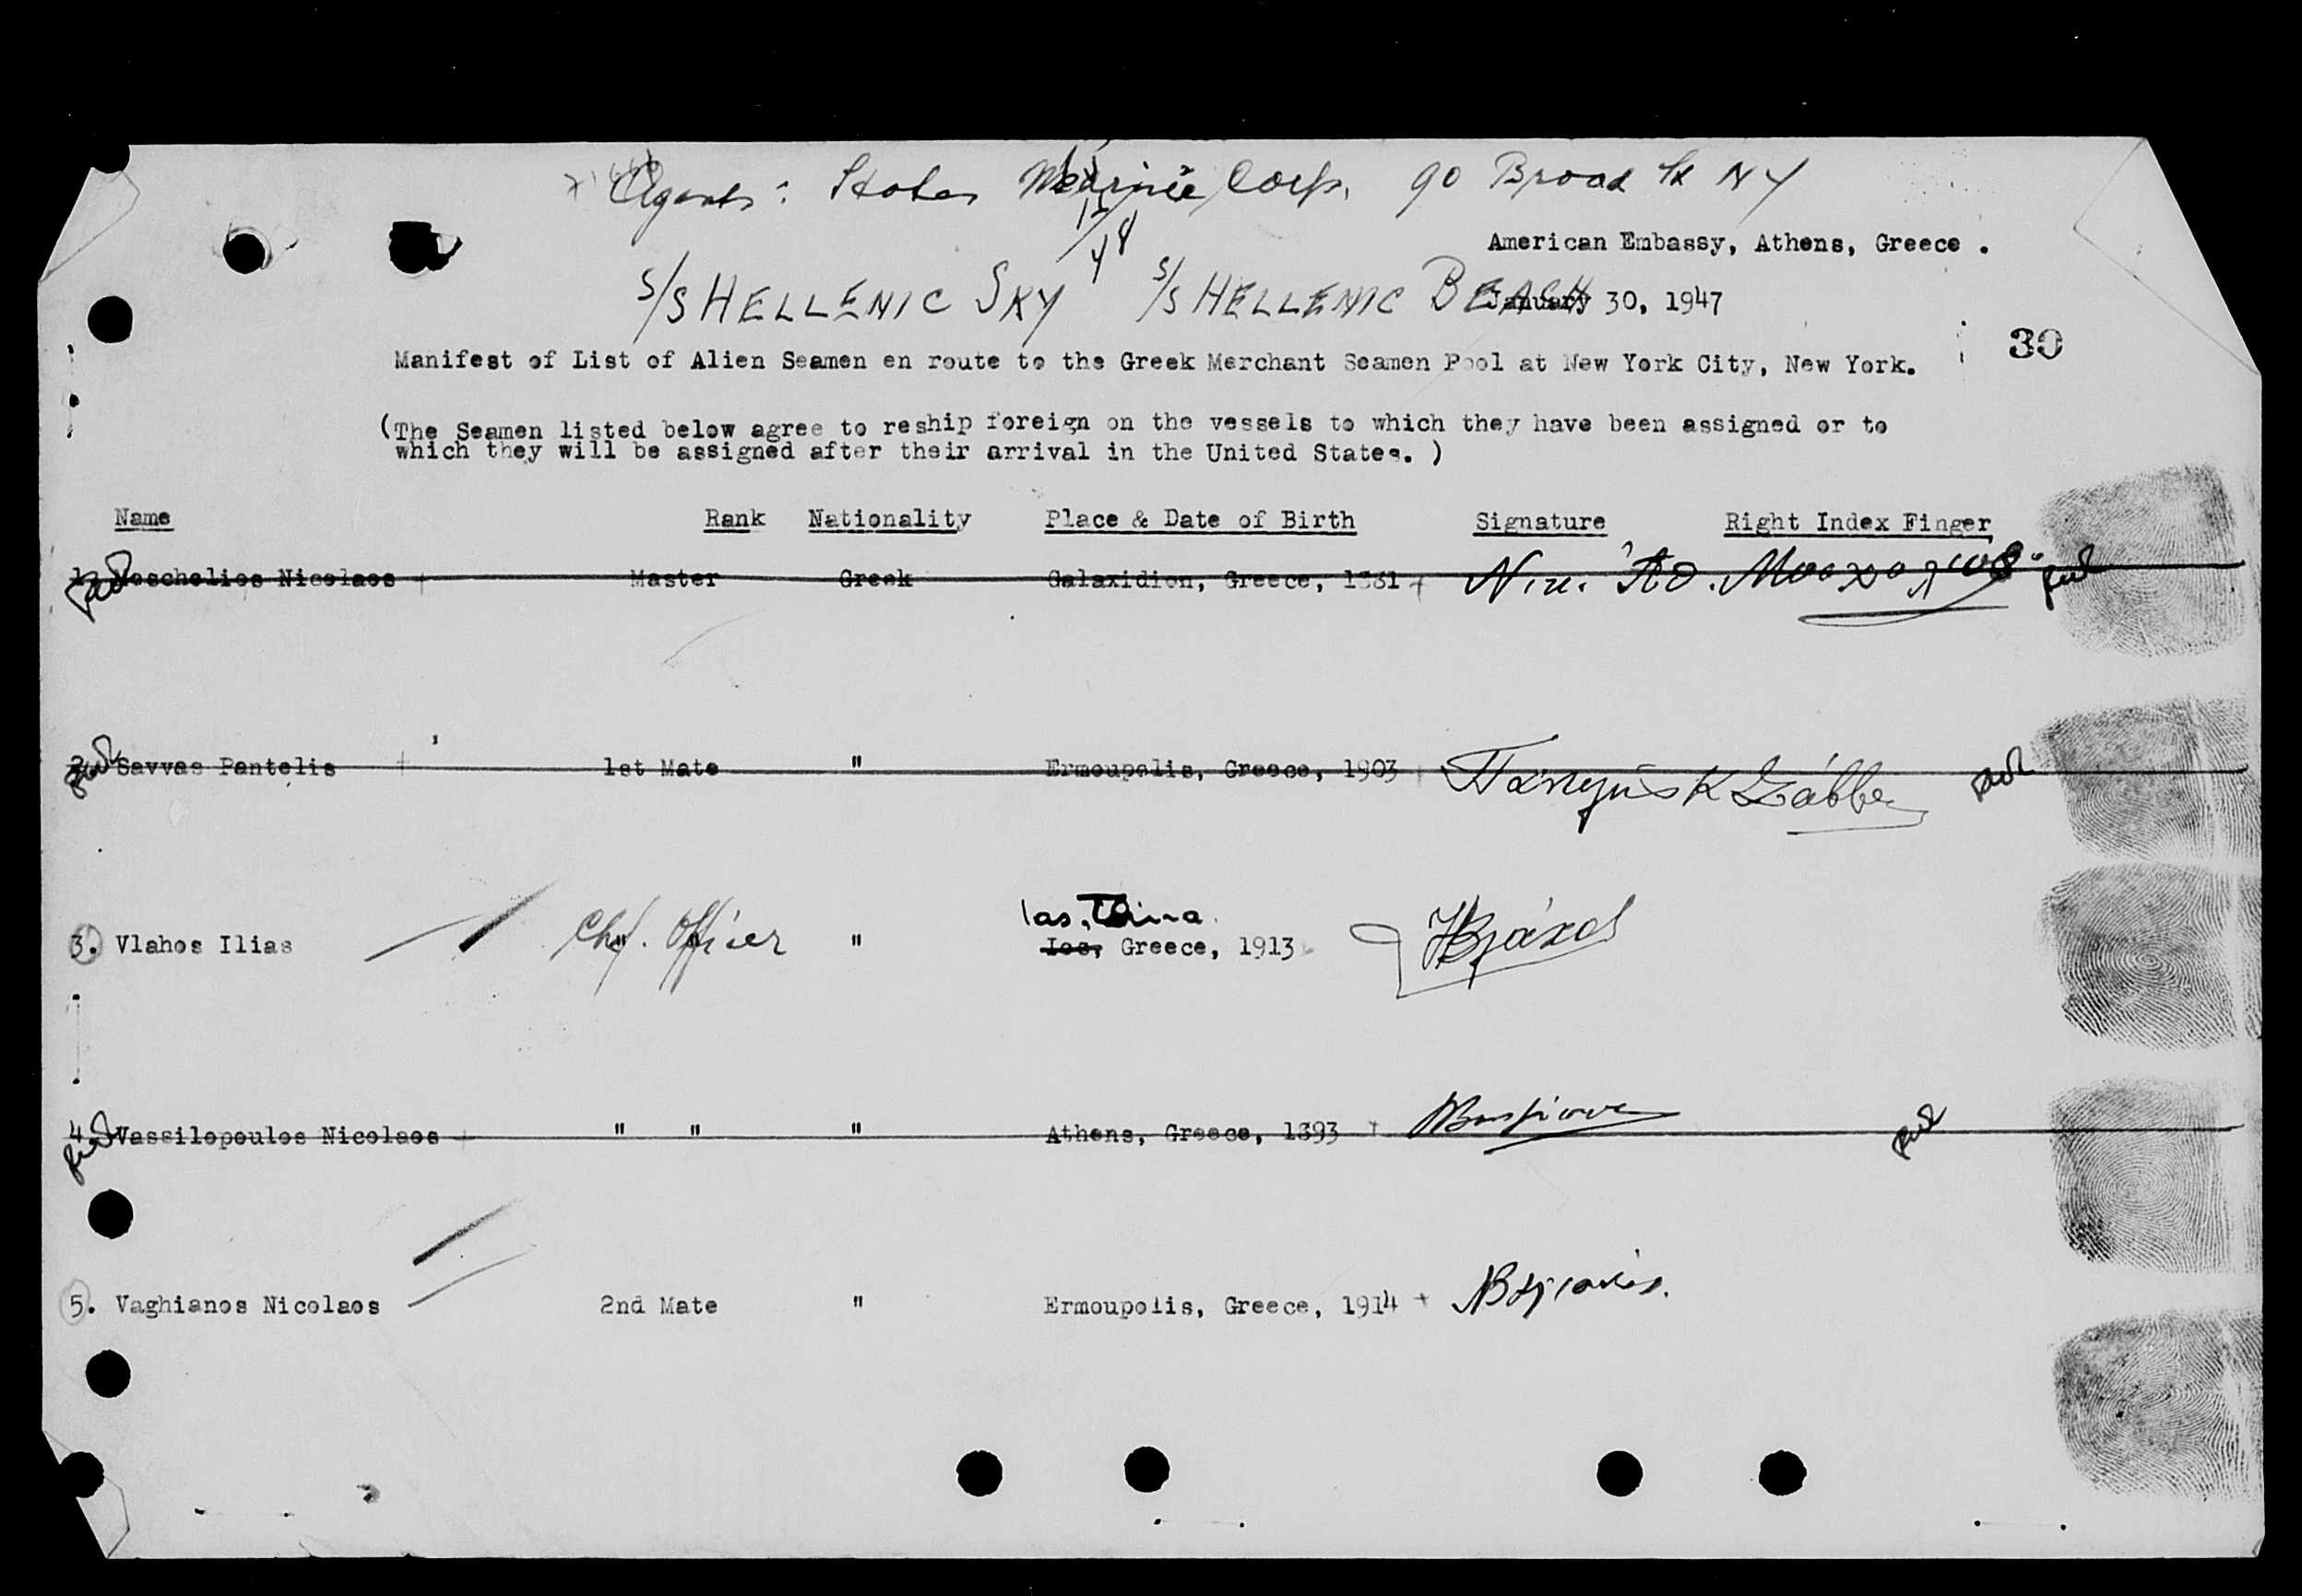 Agents: Stokes Marine Corp. 90 Broad St NY
American Embassy, Athens, Greece .
S/S HELLENIC SKY S/S HELLENIC BEACH
January 30, 1947
30
Manifest of List of Alien Seamen en route to the Greek Merchant Seamen Pool at New York City, New York.
(The Seamen listed below agree to reship foreign on the vessels to which they have been assigned or to
which they will be assigned after their arrival in the United States. )
Name Rank Nationality Place & Date of Birth Signature Right Index Finger
Moscholios Nicolaos Master Greek Galaxidion, Greece, 1881 Νικ. Αθ. Μοσχολιός
2. Savvas Pantelis 1st Mate " Ermoupolis, Greece, 1903 Παντελής Κ Σάββας
Chf. Officer
3. Vlahos Ilias " " " Ios, Greece, 1913 ΗΒλάχος
4. Vassilopoulos Nicolaos " " " Athens, Greece, 1893
5. Vaghianos Nicolaos 2nd Mate " Ermoupolis, Greece, 1914